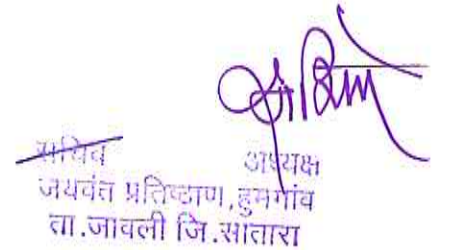 सचिव अध्यक्ष
जयवंत प्रतिष्ठाण,हुमगांव
ता.जावली जि.सातारा